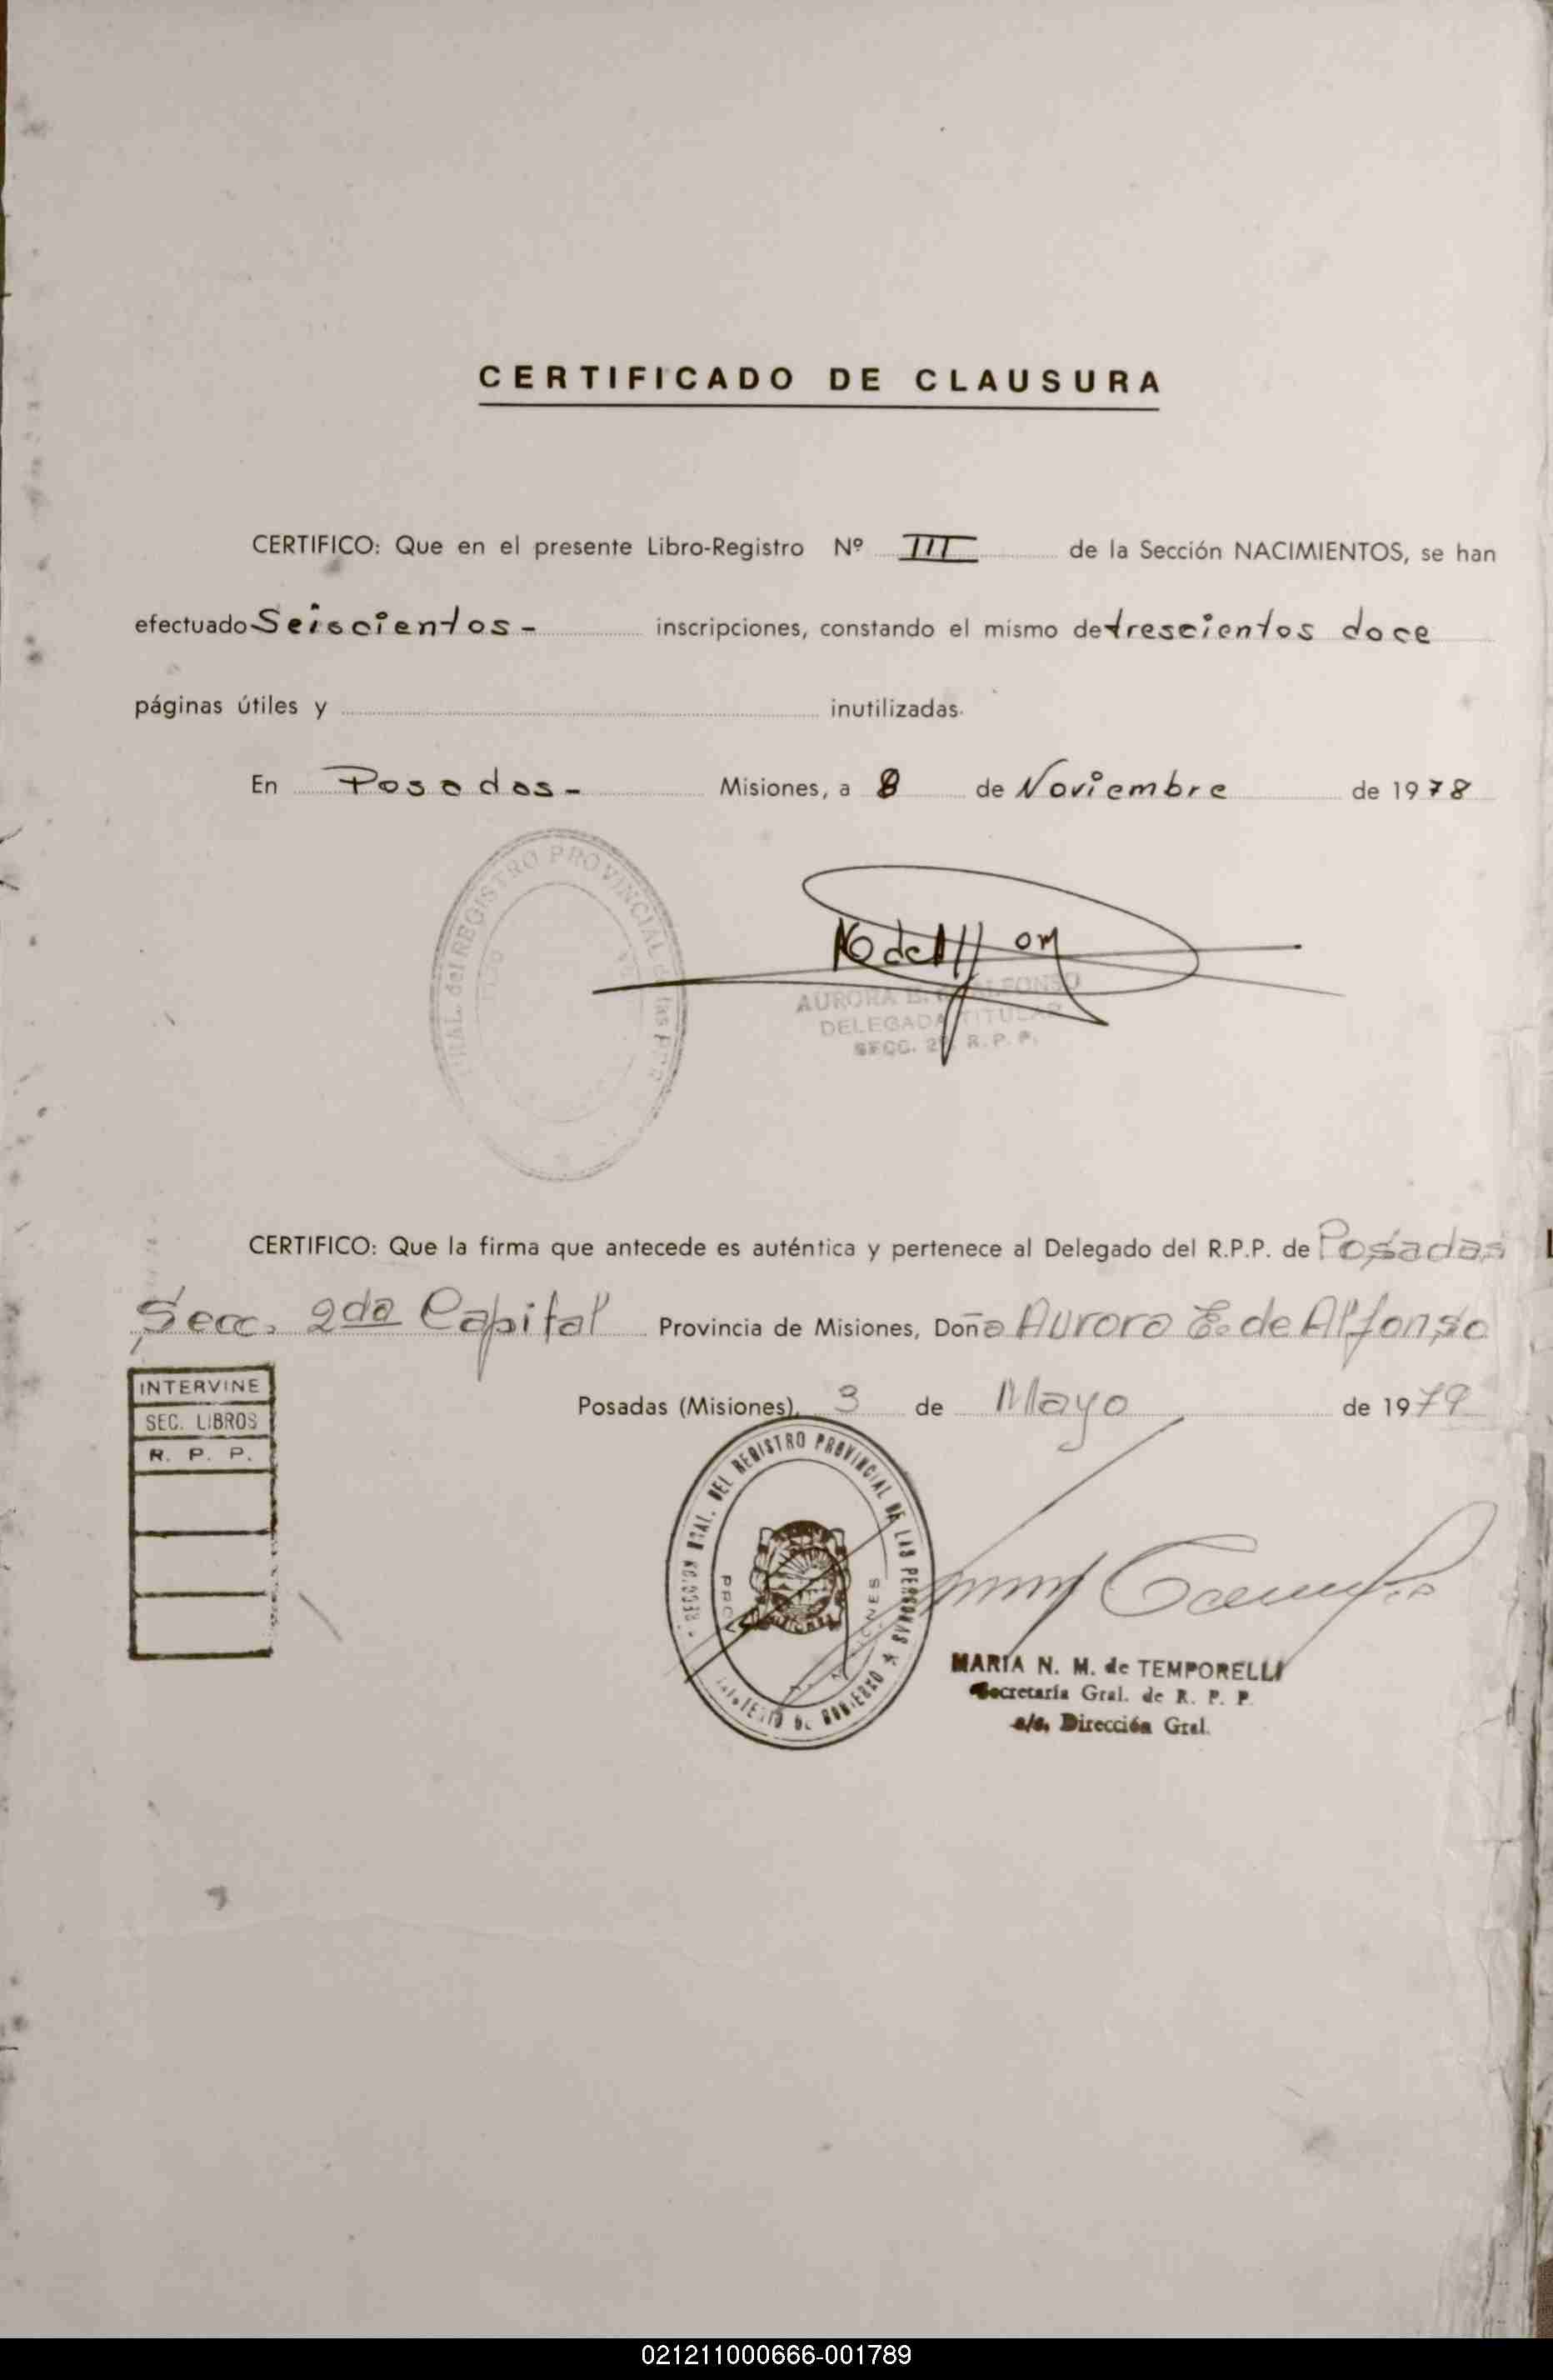 CERTIFICADO DE CLAUSURA
CERTIFICO: Que en el presente Libro-Registro Nº III de la Sección NACIMIENTOS, se han
efectuado Seiscientos - inscripciones, constando el mismo de trescientos doce
páginas útiles y inutilizadas.
En Posadas - Misiones, a 8 de Noviembre de 1978
GRAL. del REGISTRO PROVINCIAL de las
AURORA E. de ALFONSO
DELEGADA TITULAR
SECC. 2ª R. P. P.
CERTIFICO: Que la firma que antecede es auténtica y pertenece al Delegado del R.P.P. de Posadas
Secc. 2da Capital Provincia de Misiones, Doña Aurora E. de Alfonso
Posadas (Misiones), 3 de Mayo de 1979
INTERVINE
SEC. LIBROS
R. P. P.
DIRECCION GRAL. DEL REGISTRO PROVINCIAL DE LAS PERSONAS
MINISTERIO DE GOBIERNO
PROV. MISIONES
MARIA N. M. de TEMPORELLI
Secretaría Gral. de R. P. P.
a/c. Dirección Gral.
021211000666-001789